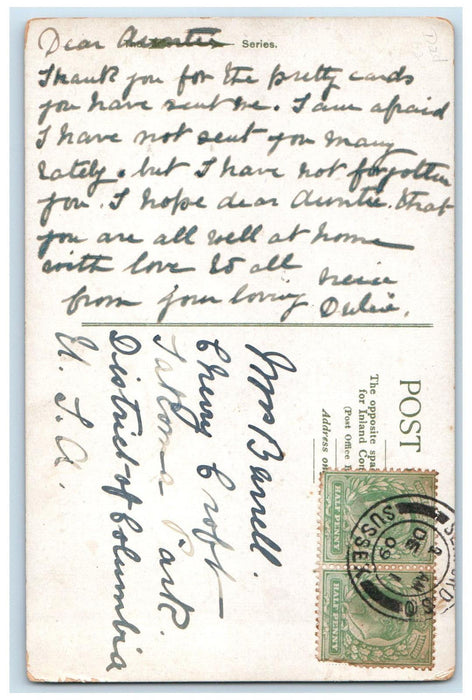 Dear Auntie Series.
Thank you for the pretty cards
you have sent me. I am afraid
I have not sent you many
lately. but I have not forgotten
you. I hope dear Auntie. that
you are all well at home
with love to all
from your loving neice
Dulcie.
Mrs Barrell.
Cherry Croft
Takoma Park.
District of Columbia
U. S. A.
POST
The opposite
for Inland
(Post Office
Address
HALF PENNY
HALF PENNY
SUSSEX
DE 1
09